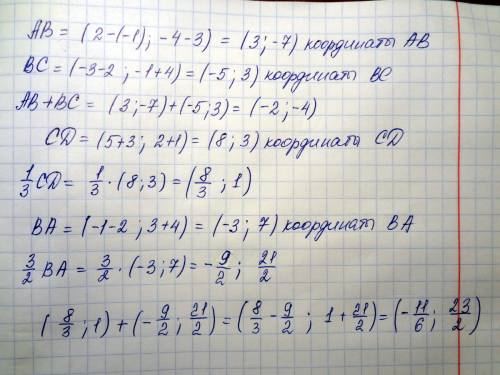 AB = (2-(-1); -4-3) = (3; -7) координаты AB
BC = (-3-2; -1+4) = (-5; 3) координаты BC
AB+BC = (3;-7)+(-5;3) = (-2;-4)
CD = (5+3; 2+1) = (8; 3) координаты CD
1/3 CD = 1/3 · (8; 3) = (8/3; 1)
BA = (-1-2; 3+4) = (-3; 7) координаты BA
3/2 BA = 3/2 · (-3; 7) = -9/2; 21/2
(8/3; 1) + (-9/2; 21/2) = (8/3 - 9/2; 1 + 21/2) = (-11/6; 23/2)